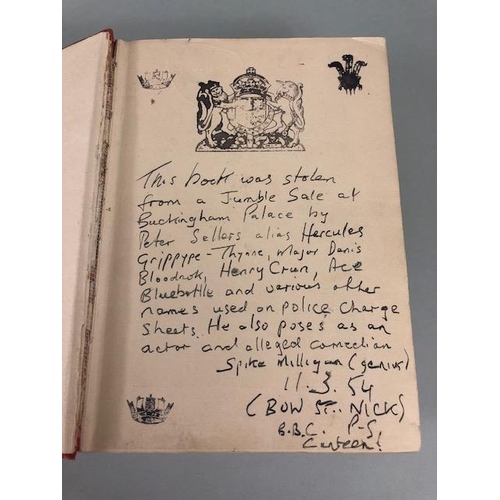 This book was stolen
from a Jumble Sale at
Buckingham Palace by
Peter Sellers alias Hercules
Grippype-Thynne, Major Denis
Bloodnok, Henry Crun, Ace
Bluebottle and various other
names used on police charge
sheets. He also poses as an
actor and alleged comedian
Spike Milligan (genius)
11.3.54
(BOW St.. NICK)
B.B.C. P-S,
Canteen!